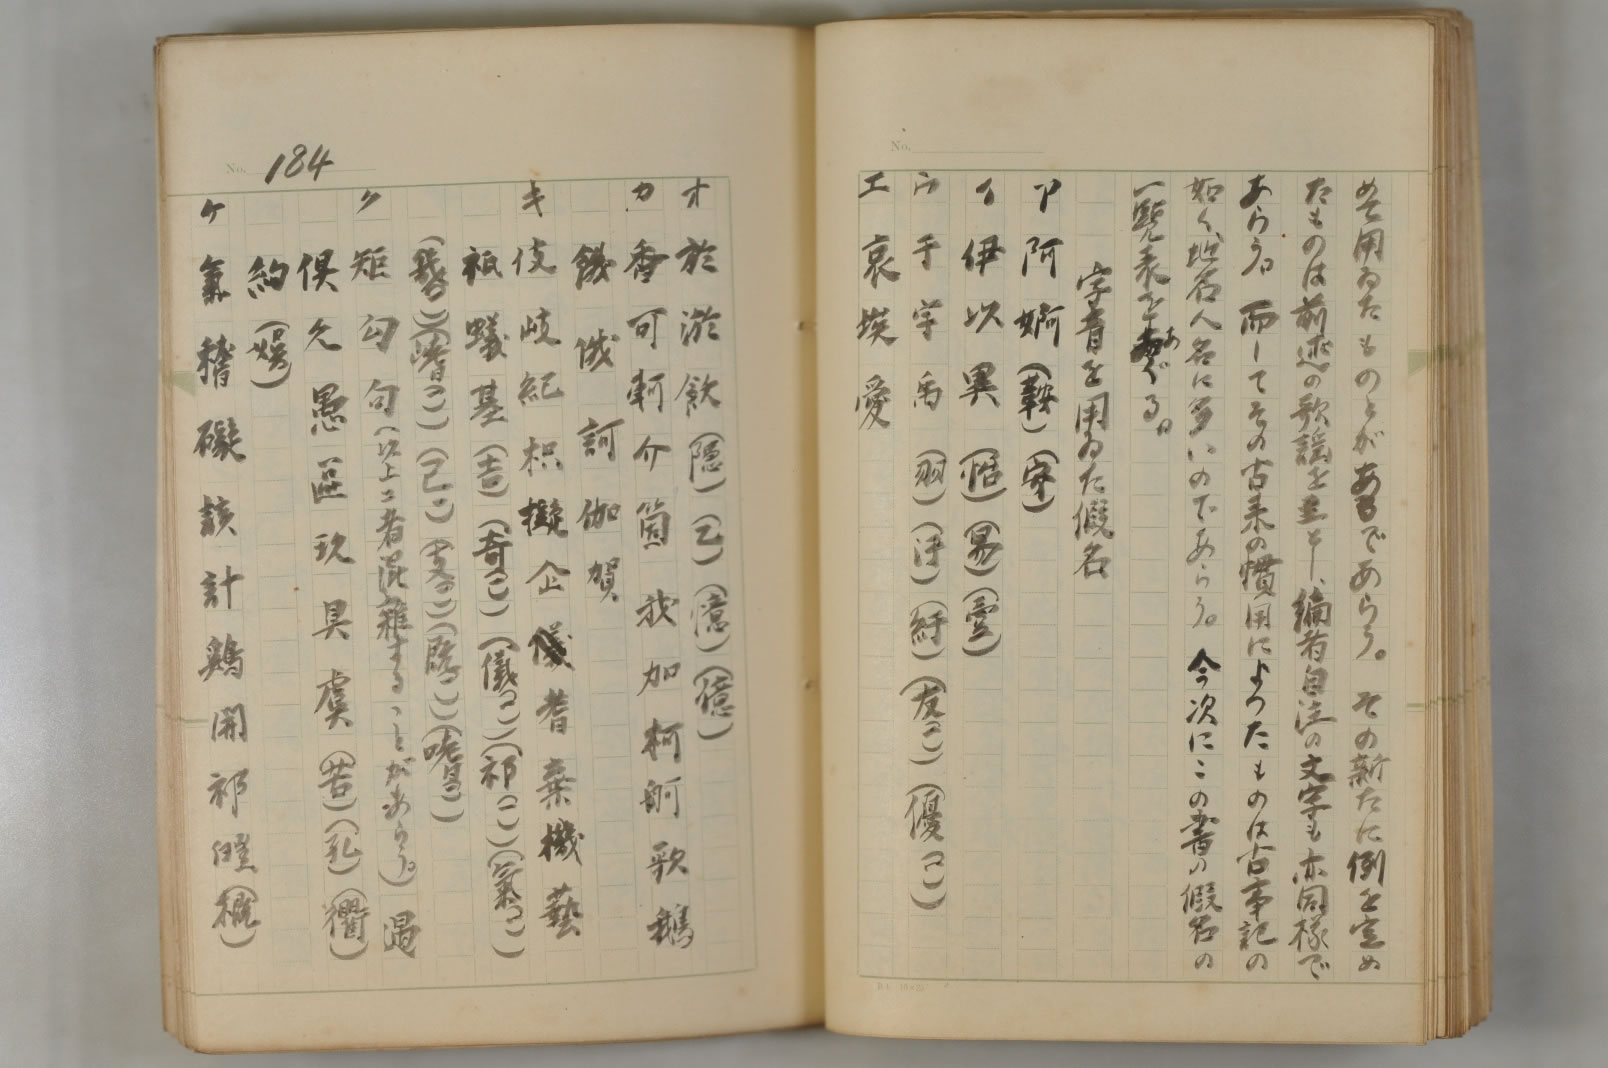 めて用ゐたものとがあるであらう。その新たに例を定め
たものは前述の歌謡を主とし、編者自注の文字も亦同様で
あらう。而してその古来の慣用によつたものは古事記の
如く、地名人名に多いのであらう。今次にこの書の假名の
一覧表をあぐる。
字音を用ゐた假名
ア 阿 婀 (鞍)
イ 伊 以 異 (易) (壹)
ウ 于 宇 禹 (羽) (紆) (友) (優)
エ 哀 埃 愛
No. 184
オ 於 淤 飫 (隠) (乙) (憶) (億)
カ 香 可 軻 介 箇 我 加 柯 舸 歌 鵝
餓 俄 訶 伽 賀
キ 伎 岐 紀 枳 擬 企 儀 耆 棄 機 藝
祇 蟻 基 (吉) (奇) (儀) (祁) (氣)
ク 矩 勾 句 (以上二者混雑することがあらう。)
倶 久 愚 區 玖 具 虞 (苦) (孔) (衢)
ケ 氣 稽 礙 該 計 鶏 開 祁 (概)